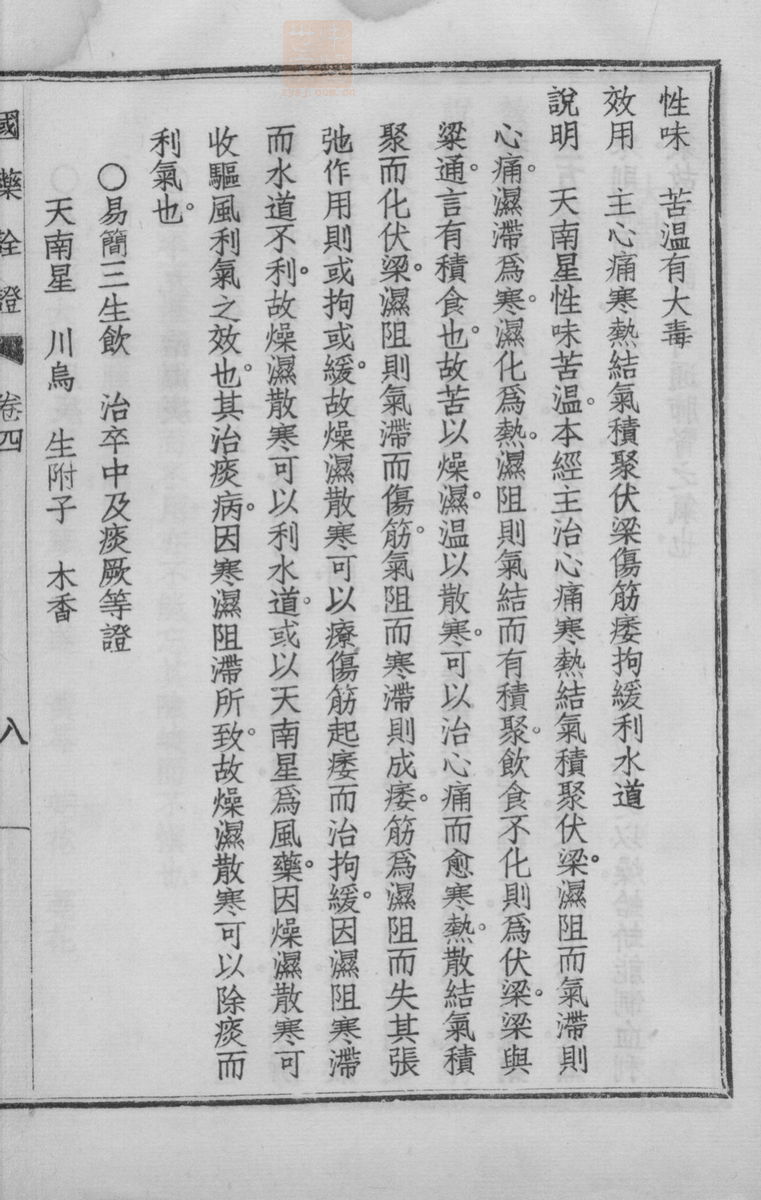 性味　苦溫有大毒
效用　主心痛寒熱結氣積聚伏梁傷筋痿拘緩利水道
說明　天南星性味苦溫。本經主治心痛寒熱結氣積聚伏梁。濕阻而氣滯則
心痛。濕滯爲寒。濕化爲熱。濕阻則氣結而有積聚。飲食不化則爲伏梁。梁與
粱通。言有積食也。故苦以燥濕。溫以散寒。可以治心痛而愈寒熱。散結氣積
聚而化伏梁。濕阻則氣滯而傷筋。氣阻而寒滯則成痿。筋爲濕阻而失其張
弛作用則或拘或緩。故燥濕散寒可以療傷筋起痿而治拘緩。因濕阻寒滯
而水道不利。故燥濕散寒可以利水道。或以天南星爲風藥。因燥濕散寒可
收驅風利氣之效也。其治痰病。因寒濕阻滯所致。故燥濕散寒可以除痰而
利氣也。
○易簡三生飲　治卒中及痰厥等證
天南星　川烏　生附子　木香
國藥詮證　卷四　八